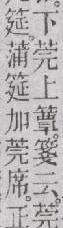 下莞上簟箋云莞
筵蒲筵加莞席正